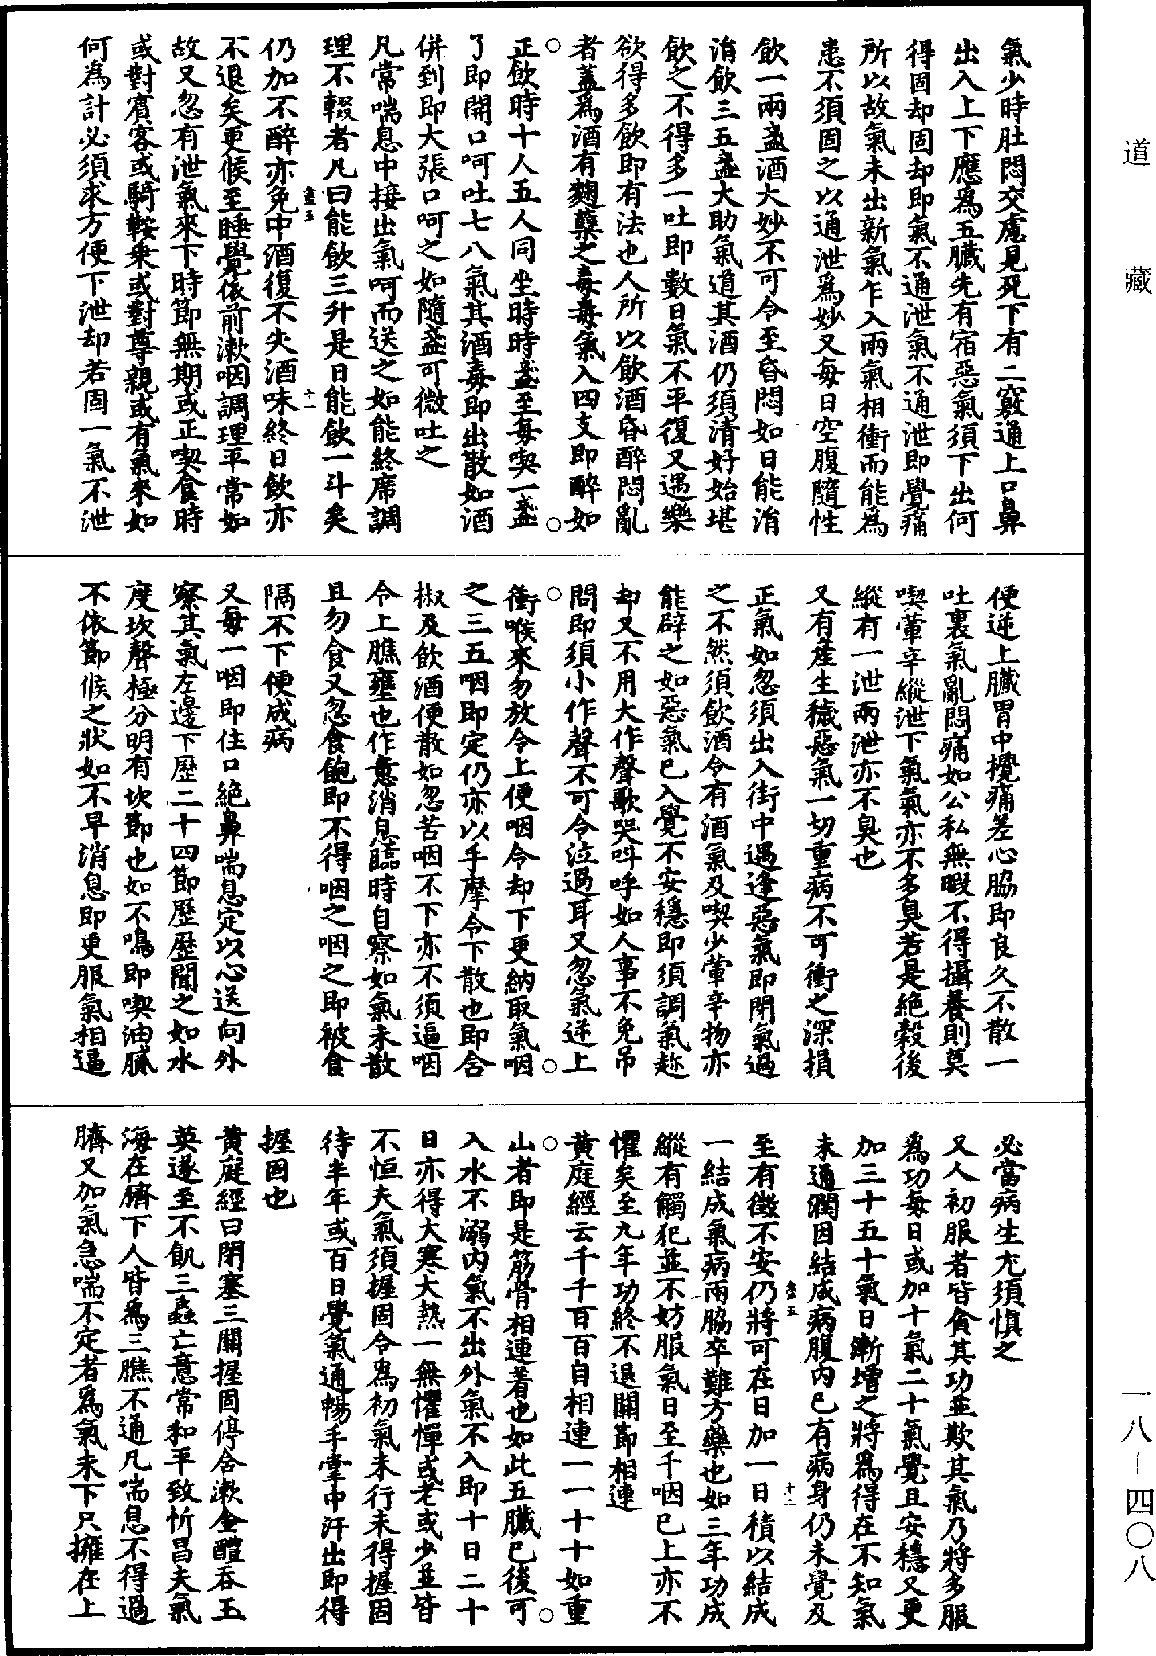 氣少時肚悶交處見死下有二竅通上口鼻
出入上下應爲五臟先有宿惡氣須下出何
得固却固却即氣不通泄氣不通泄即覺痛
所以故氣未出新氣乍入兩氣相衝而能爲
患不須固之以通泄爲妙又每日空腹隨性
飲一兩盞酒大妙不可令至昏悶如日能消
消飲三五盞大助氣道其酒仍須清好始堪
飲之不得多一吐即數日氣不平復又遇樂
欲得多飲即有法也人所以飲酒昏醉悶亂
者蓋爲酒有麴蘖之毒毒氣入四支即醉如
正飲時十人五人同坐時時盞至每喫一盞
了即開口呵吐七八氣其酒毒即出散如酒
併到即大張口呵之如隨盞可微吐之
凡常喘息中接出氣呵而送之如能終席調
理不輟者凡日能飲三升是日能飲一斗矣
盡五
十一
仍加不醉亦免中酒復不失酒味終日飲亦
不退矣更候至睡覺依前漱咽調理平常如
故又忽有泄氣來下時節無期或正喫食時
或對賓客或騎鞍乘或對尊親或有氣來如
何爲計必須求方便下泄却若固一氣不泄
便逆上臟胃中攪痛差心脇即良久不散一
吐裏氣亂悶痛如公私無暇不得攝養則莫
喫葷辛縱泄下氣氣亦不多臭若是絶穀後
縱有一泄兩泄亦不臭也
又有産生穢惡氣一切重病不可衝之深損
正氣如忽須出入街中遇逢惡氣即閉氣過
之不然須飲酒令有酒氣及喫少葷辛物亦
能辟之如惡氣已入覺不安穩即須調氣趂
却又不用大作聲歌哭叫呼如人事不免吊
問即須小作聲不可令泣過耳又忽氣逆上
衝喉來勿放令上便咽令却下更納取氣咽
之三五咽即定仍亦以手摩令下散也即含
椒及飲酒便散如忽苦咽不下亦不須逼咽
令上膲壅也作意消息臨時自察如氣未散
且勿食又忽食飽即不得咽之咽之即被食
隔不下便成病
又每一咽即住口絶鼻喘息定以心送向外
察其氣左邊下歷二十四節歷歷聞之如水
度坎聲極分明有坎節也如不鳴即喫油膩
不依節候之狀如不早消息即更服氣相逼
必當病生尤須慎之
又人初服者皆貪其功並欺其氣乃將多服
爲功每日或加十氣二十氣覺且安穩又更
加三十五十氣日漸增之將爲得在不知氣
未通潤因結成病腹内已有病身仍未覺及
盡五
十二
至有徵不安仍將可在日加一日積以結成
一結成氣病兩脇卒難方藥也如三年功成
縱有觸犯並不妨服氣日至千咽已上亦不
懼矣至九年功終不退關節相連
黄庭經云千千百百自相連一一十十如重
山者即是筋骨相連著也如此五臟已後可
入水不溺内氣不出外氣不入即十日二十
日亦得大寒大熱一無懼憚或老或少並皆
不恒夫氣須握固令爲初氣未行未得握固
待半年或百日覺氣通暢手掌中汗出即得
握固也
黄庭經曰閉塞三關握固停含漱金醴吞玉
英遂至不飢三蟲亡意常和平致忻昌夫氣
海在臍下人皆爲三膲不通凡喘息不得過
臍又加氣急喘不定者爲氣未下只擁在上
道藏
一八-四〇八